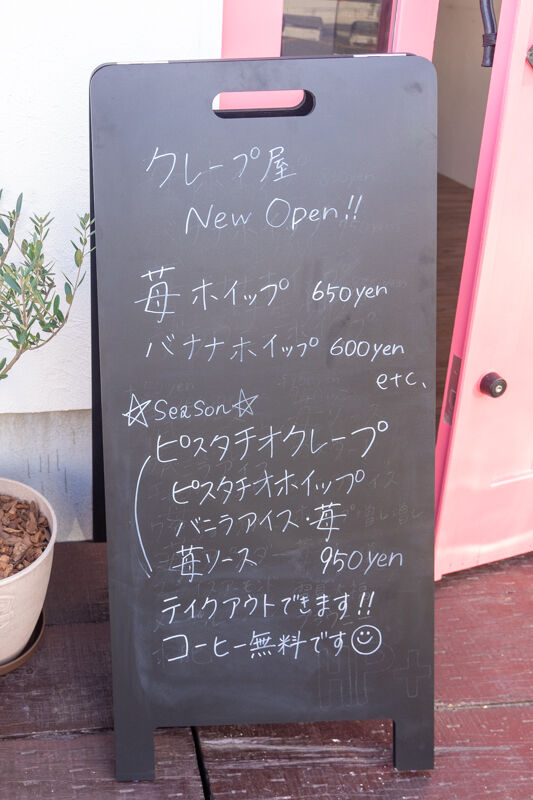 クレープ屋
New Open!!
苺ホイップ 650yen
バナナホイップ 600yen
etc.
☆Season☆
ピスタチオクレープ
ピスタチオホイップ
バニラアイス・苺
苺ソース 950yen
テイクアウトできます!!
コーヒー無料です☺